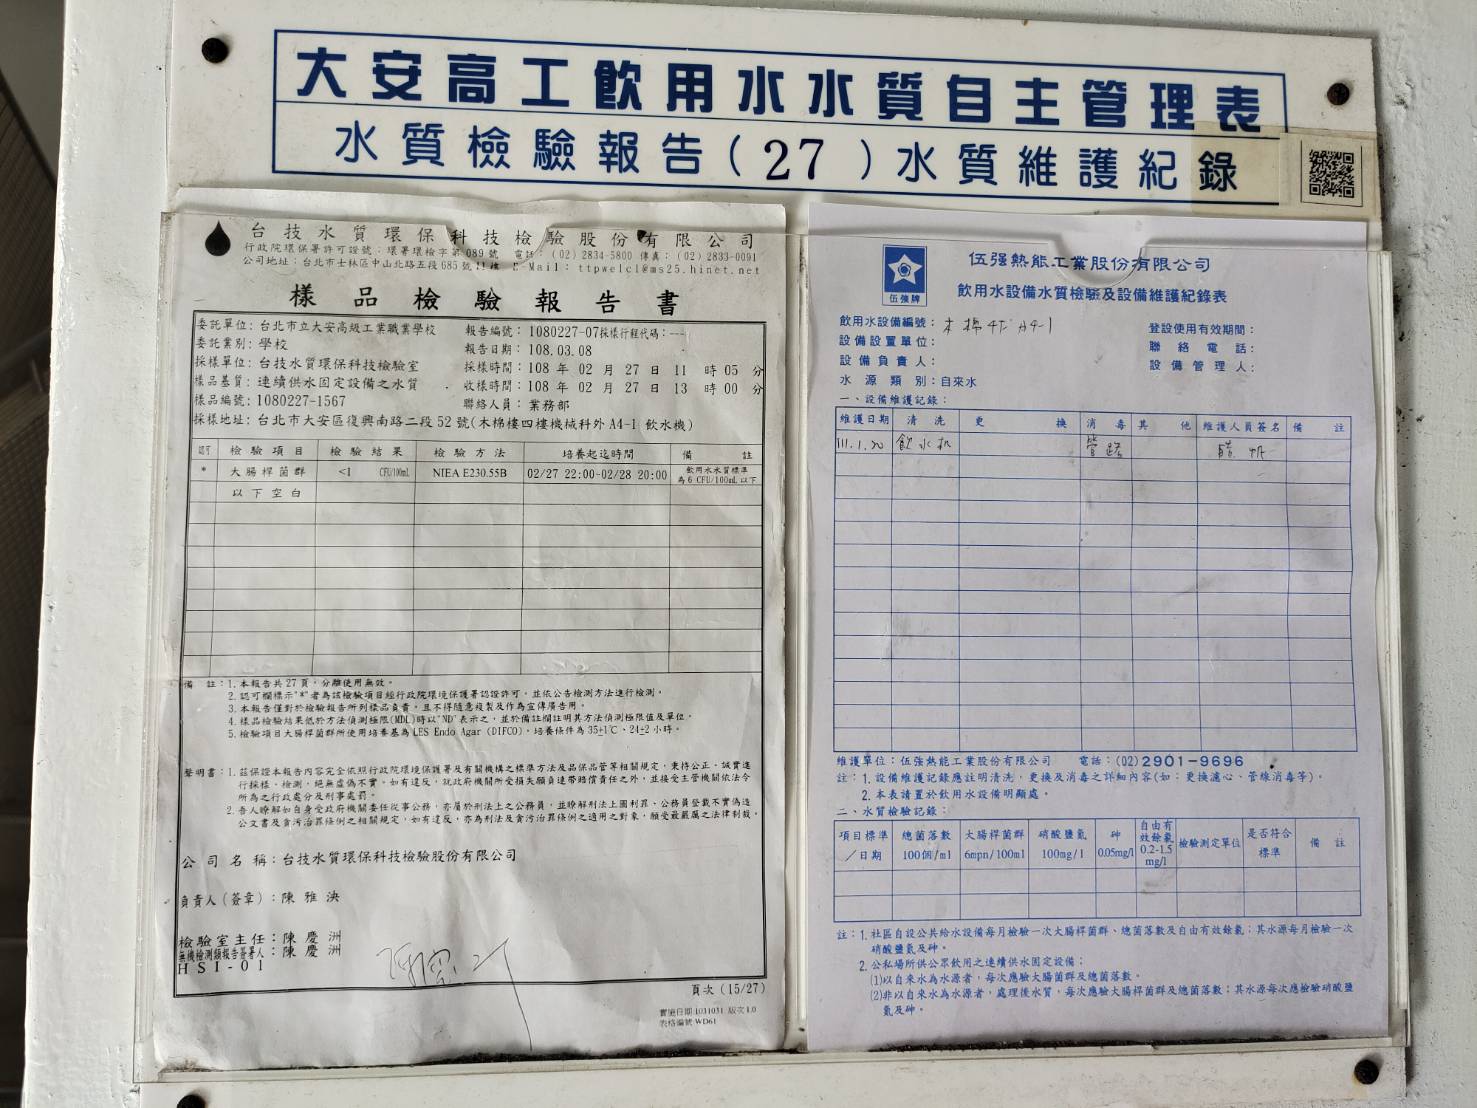 大安高工飲用水水質自主管理表
水質檢驗報告(27)水質維護紀錄
台技水質環保科技檢驗股份有限公司
行政院環保署許可證號：環署環檢字第089號 電話：(02) 2834-5800 傳真：(02) 2833-0091
公司地址：台北市士林區中山北路五段685號11樓 E-Mail：ttpwelcl@ms25.hinet.net
樣品檢驗報告書
委託單位：台北市立大安高級工業職業學校 報告編號：1080227-07採樣行程代碼：---
委託業別：學校 報告日期：108.03.08
採樣單位：台技水質環保科技檢驗室 採樣時間：108 年 02 月 27 日 11 時 05 分
樣品基質：連續供水固定設備之水質 收樣時間：108 年 02 月 27 日 13 時 00 分
樣品編號：1080227-1567 聯絡人員：業務部
採樣地址：台北市大安區復興南路二段 52 號(木棉樓四樓機械科外 A4-1 飲水機)
認可 檢驗項目 檢驗結果 檢驗方法 培養起迄時間 備註
* 大腸桿菌群 <1 CFU/100mL NIEA E230.55B 02/27 22:00-02/28 20:00 飲用水水質標準
為 6 CFU/100mL 以下
以下空白
備 註：1.本報告共27頁，分離使用無效。
2.認可欄標示"*"者為該檢驗項目經行政院環境保護署認證許可，並依公告檢測方法進行檢測。
3.本報告僅對於檢驗報告所列樣品負責，且不得隨意複製及作為宣傳廣告用。
4.樣品檢驗結果低於方法偵測極限(MDL)時以"ND"表示之，並於備註欄註明其方法偵測極限值及單位。
5.檢驗項目大腸桿菌群所使用培養基為LES Endo Agar (DIFCO)，培養條件為35±1℃、24±2小時。
聲明書：1.茲保證本報告內容完全依照行政院環境保護署及有關機構之標準方法及品保品管等相關規定，秉持公正、誠實進
行採樣、檢測，絕無虛偽不實。如有違反，就政府機關所受損失願負連帶賠償責任之外，並接受主管機關依法令
所為之行政處分及刑事處罰。
2.吾人瞭解如自身受政府機關委任從事公務，亦屬於刑法上之公務員，並瞭解刑法上圖利罪、公務員登載不實偽造
公文書及貪污治罪條例之相關規定，如有違反，亦為刑法及貪污治罪條例之適用之對象，願受最嚴厲之法律制裁。
公司名稱：台技水質環保科技檢驗股份有限公司
負責人(簽章)：陳雅泱
檢驗室主任：陳慶洲
無機檢測類報告簽署人：陳慶洲
HSI-01
頁次 (15/27)
實施日期:1031031 版次:1.0
表格編號:WD61
伍強牌
伍強熱能工業股份有限公司
飲用水設備水質檢驗及設備維護紀錄表
飲用水設備編號：木棉4F A4-1 登設使用有效期間：
設備設置單位： 聯絡電話：
設備負責人： 設備管理人：
水源類別：自來水
一、設備維護記錄：
維護日期 清洗 更換 消毒 其他 維護人員簽名 備註
111.1.20 飲水机 管路
維護單位：伍強熱能工業股份有限公司 電話：(02)2901-9696
註：1.設備維護記錄應註明清洗、更換及消毒之詳細內容(如：更換濾心、管線消毒等)。
2.本表請置於飲用水設備明顯處。
二、水質檢驗記錄：
項目標準／日期 總菌落數 100個/ml 大腸桿菌群 6mpn/100ml 硝酸鹽氮 100mg/l 砷 0.05mg/l 自由有效餘氯 0.2-1.5 mg/l 檢驗測定單位 是否符合標準 備註
註：1.社區自設公共給水設備每月檢驗一次大腸桿菌群、總菌落數及自由有效餘氯；其水源每月檢驗一次
硝酸鹽氮及砷。
2.公私場所供公眾飲用之連續供水固定設備：
(1)以自來水為水源者，每次應驗大腸菌群及總菌落數。
(2)非以自來水為水源者，處理後水質，每次應驗大腸桿菌群及總菌落數；其水源每次應檢驗硝酸鹽
氮及砷。